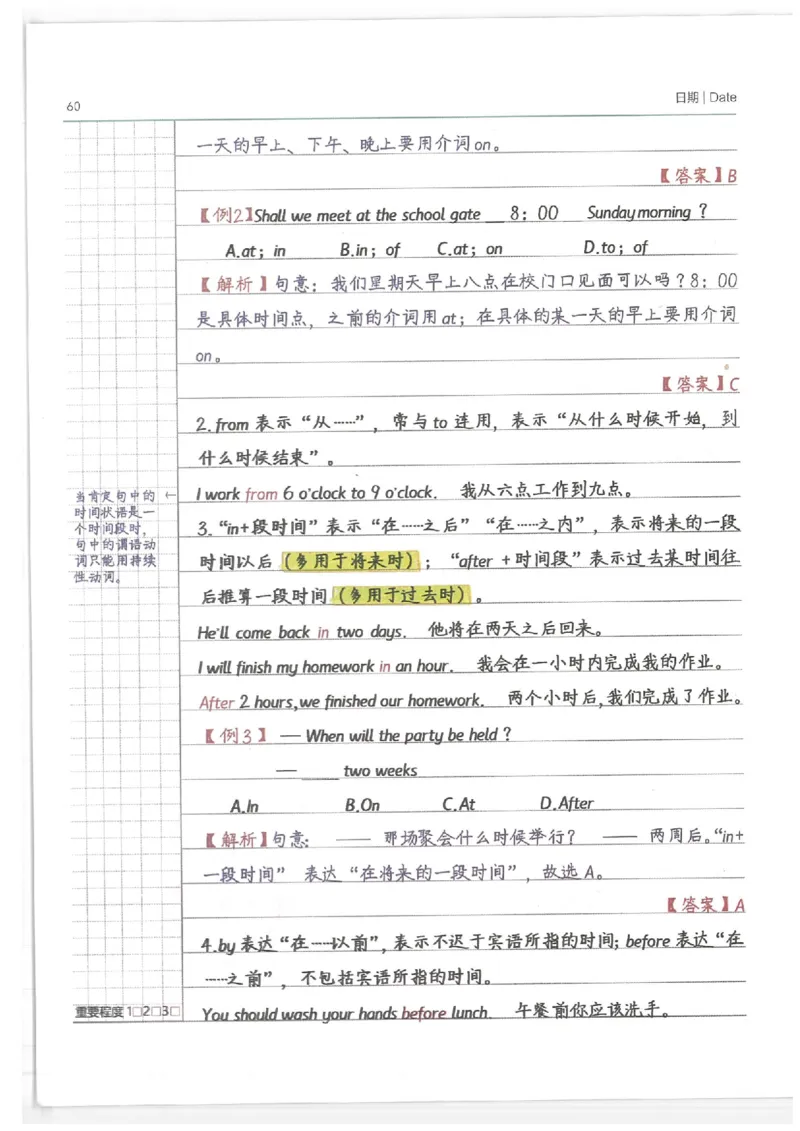 60
日期 | Date
一天的早上、下午、晚上要用介词on。
【答案】B
【例2】Shall we meet at the school gate __ 8：00 Sunday morning？
A.at；in B.in；of C.at；on D.to；of
【解析】句意：我们星期天早上八点在校门口见面可以吗？8：00
是具体时间点，之前的介词用at；在具体的某一天的早上要用介词
on。
【答案】C
2.from 表示“从……”，常与to 连用，表示“从什么时候开始，到
什么时候结束”。
I work from 6 o'clock to 9 o'clock. 我从六点工作到九点。
当肯定句中的 ←
时间状语是一
个时间段时，
句中的谓语动
词只能用持续
性动词。
3.“in+段时间”表示“在……之后”“在……之内”，表示将来的一段
时间以后（多用于将来时）；“after +时间段”表示过去某时间往
后推算一段时间（多用于过去时）。
He'll come back in two days. 他将在两天之后回来。
I will finish my homework in an hour. 我会在一小时内完成我的作业。
After 2 hours,we finished our homework. 两个小时后,我们完成了作业。
【例3】 — When will the party be held？
— ____ two weeks
A.In B.On C.At D.After
【解析】句意： —— 那场聚会什么时候举行？ —— 两周后。“in+
一段时间” 表达“在将来的一段时间”，故选A。
【答案】A
4.by表达“在……以前”,表示不迟于宾语所指的时间；before表达“在
……之前”，不包括宾语所指的时间。
You should wash your hands before lunch. 午餐前你应该洗手。
重要程度 1□2□3□